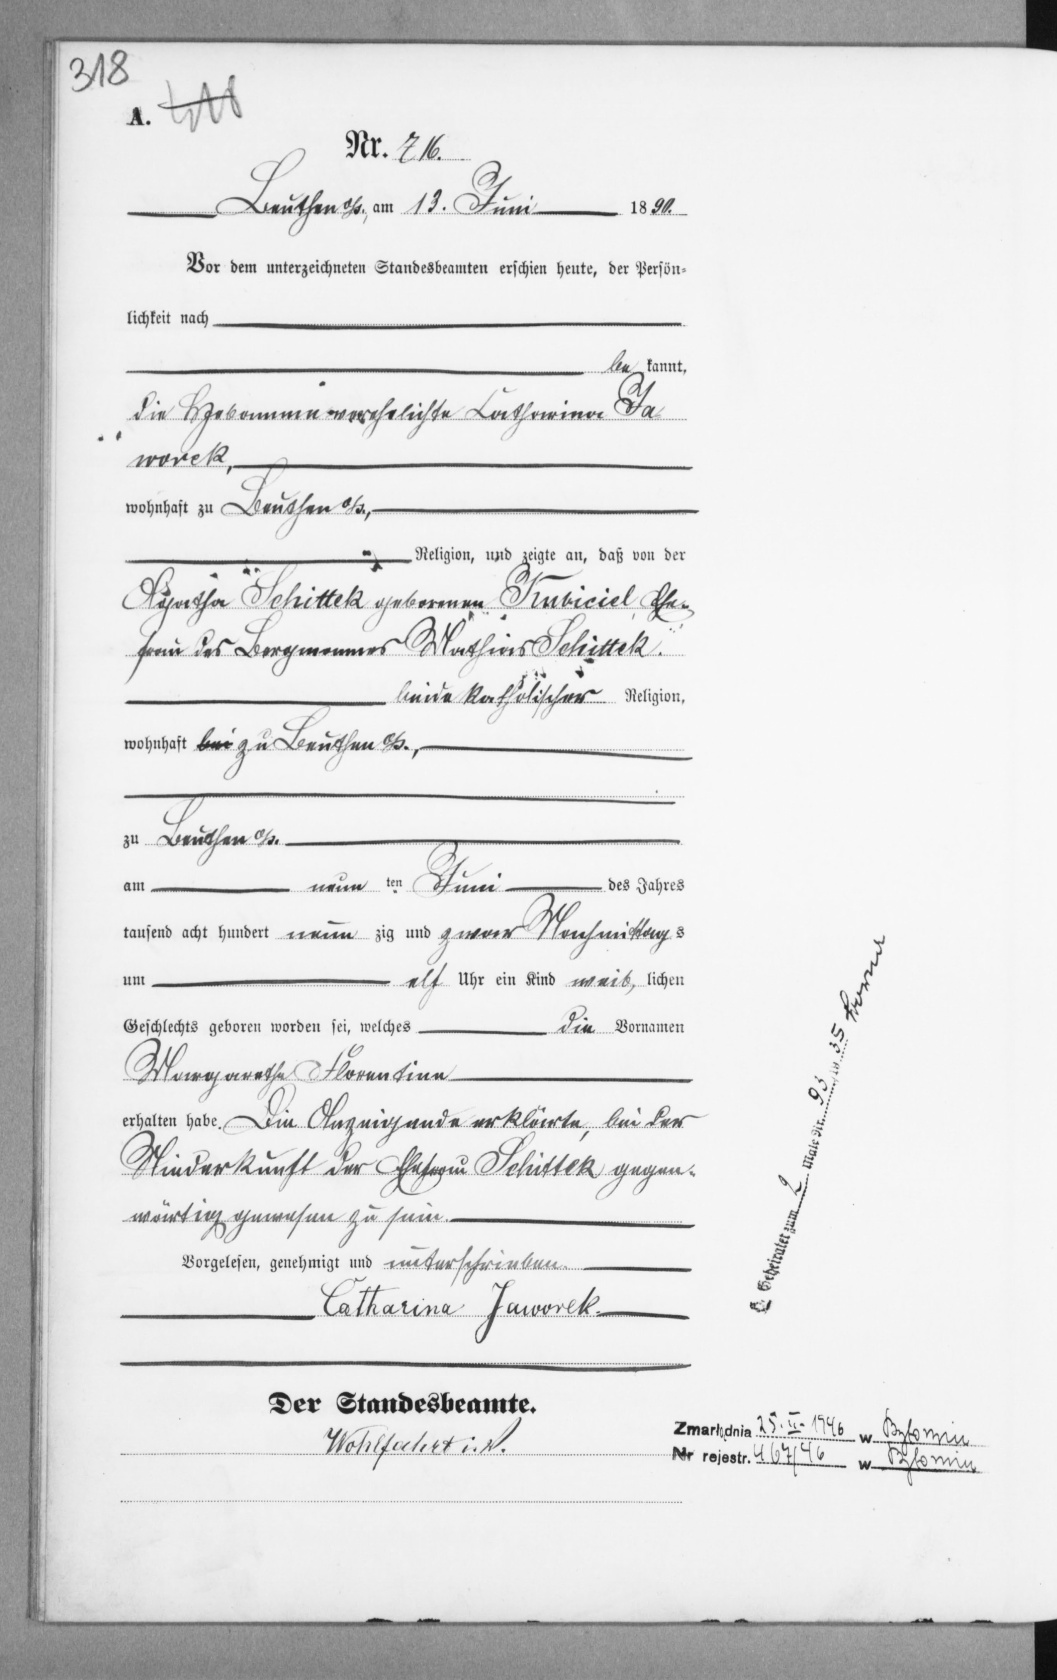 318
A.
Nr. 716.
Beuthen O/S., am 13. Juni 1890.
Vor dem unterzeichneten Standesbeamten erschien heute, der Persön-
lichkeit nach
be kannt,
die Hebamme verehelichte Catharina Ja
worek,
wohnhaft zu Beuthen O/S.,
Religion, und zeigte an, daß von der
Agatha Schittek geborenen Kubiciel, Ehe-
frau des Bergmannes Mathias Schittek.
beide katholischer Religion,
wohnhaft bei zu Beuthen O/S.,
zu Beuthen O/S.
am neun ten Juni des Jahres
tausend acht hundert neun zig und zwar Nachmittag s
um elf Uhr ein Kind weib lichen
Geschlechts geboren worden sei, welches die Vornamen
Margarethe Florentine
erhalten habe. Die Anzeigende erklärte, bei der
Niederkunft der Ehefrau Schittek gegen-
wärtig gewesen zu sein.
Vorgelesen, genehmigt und unterschrieben.
Catharina Jaworek.
Der Standesbeamte.
Wohlfahrt i. V.
Geheiratet zum 2 Male Nr. 93 35
Zmarł dnia 25. II. 1946 w Bytomiu
Nr rejestr. 467/46 w Bytomiu